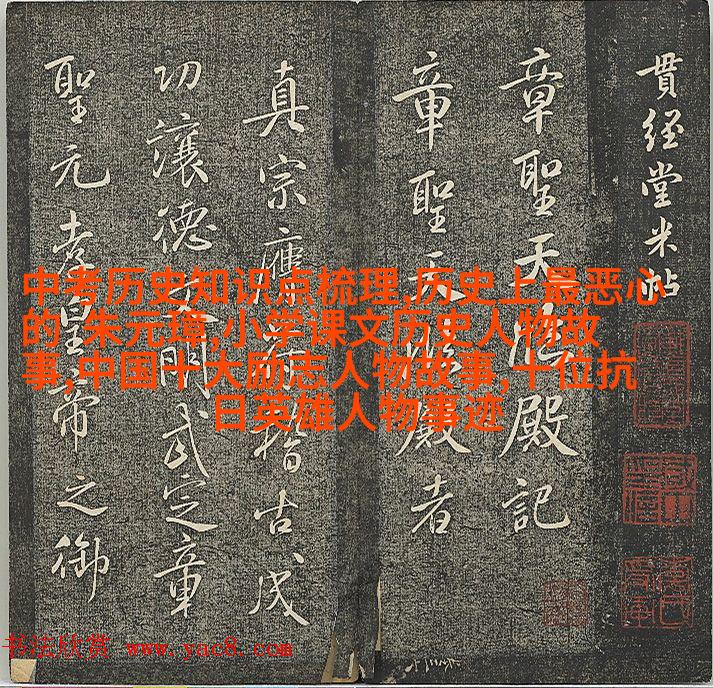 貫經堂米帖
章聖天臨殿記
章聖天臨殿者
真宗膺稽古成
功讓德明武定章
聖元孝皇帝之御
中考历史知识点梳理,历史上最恶心
的 朱元璋,小学课文历史人物故
事,中国十大励志人物故事,十位抗
日英雄人物事迹
书法欣赏 www.yac8.com